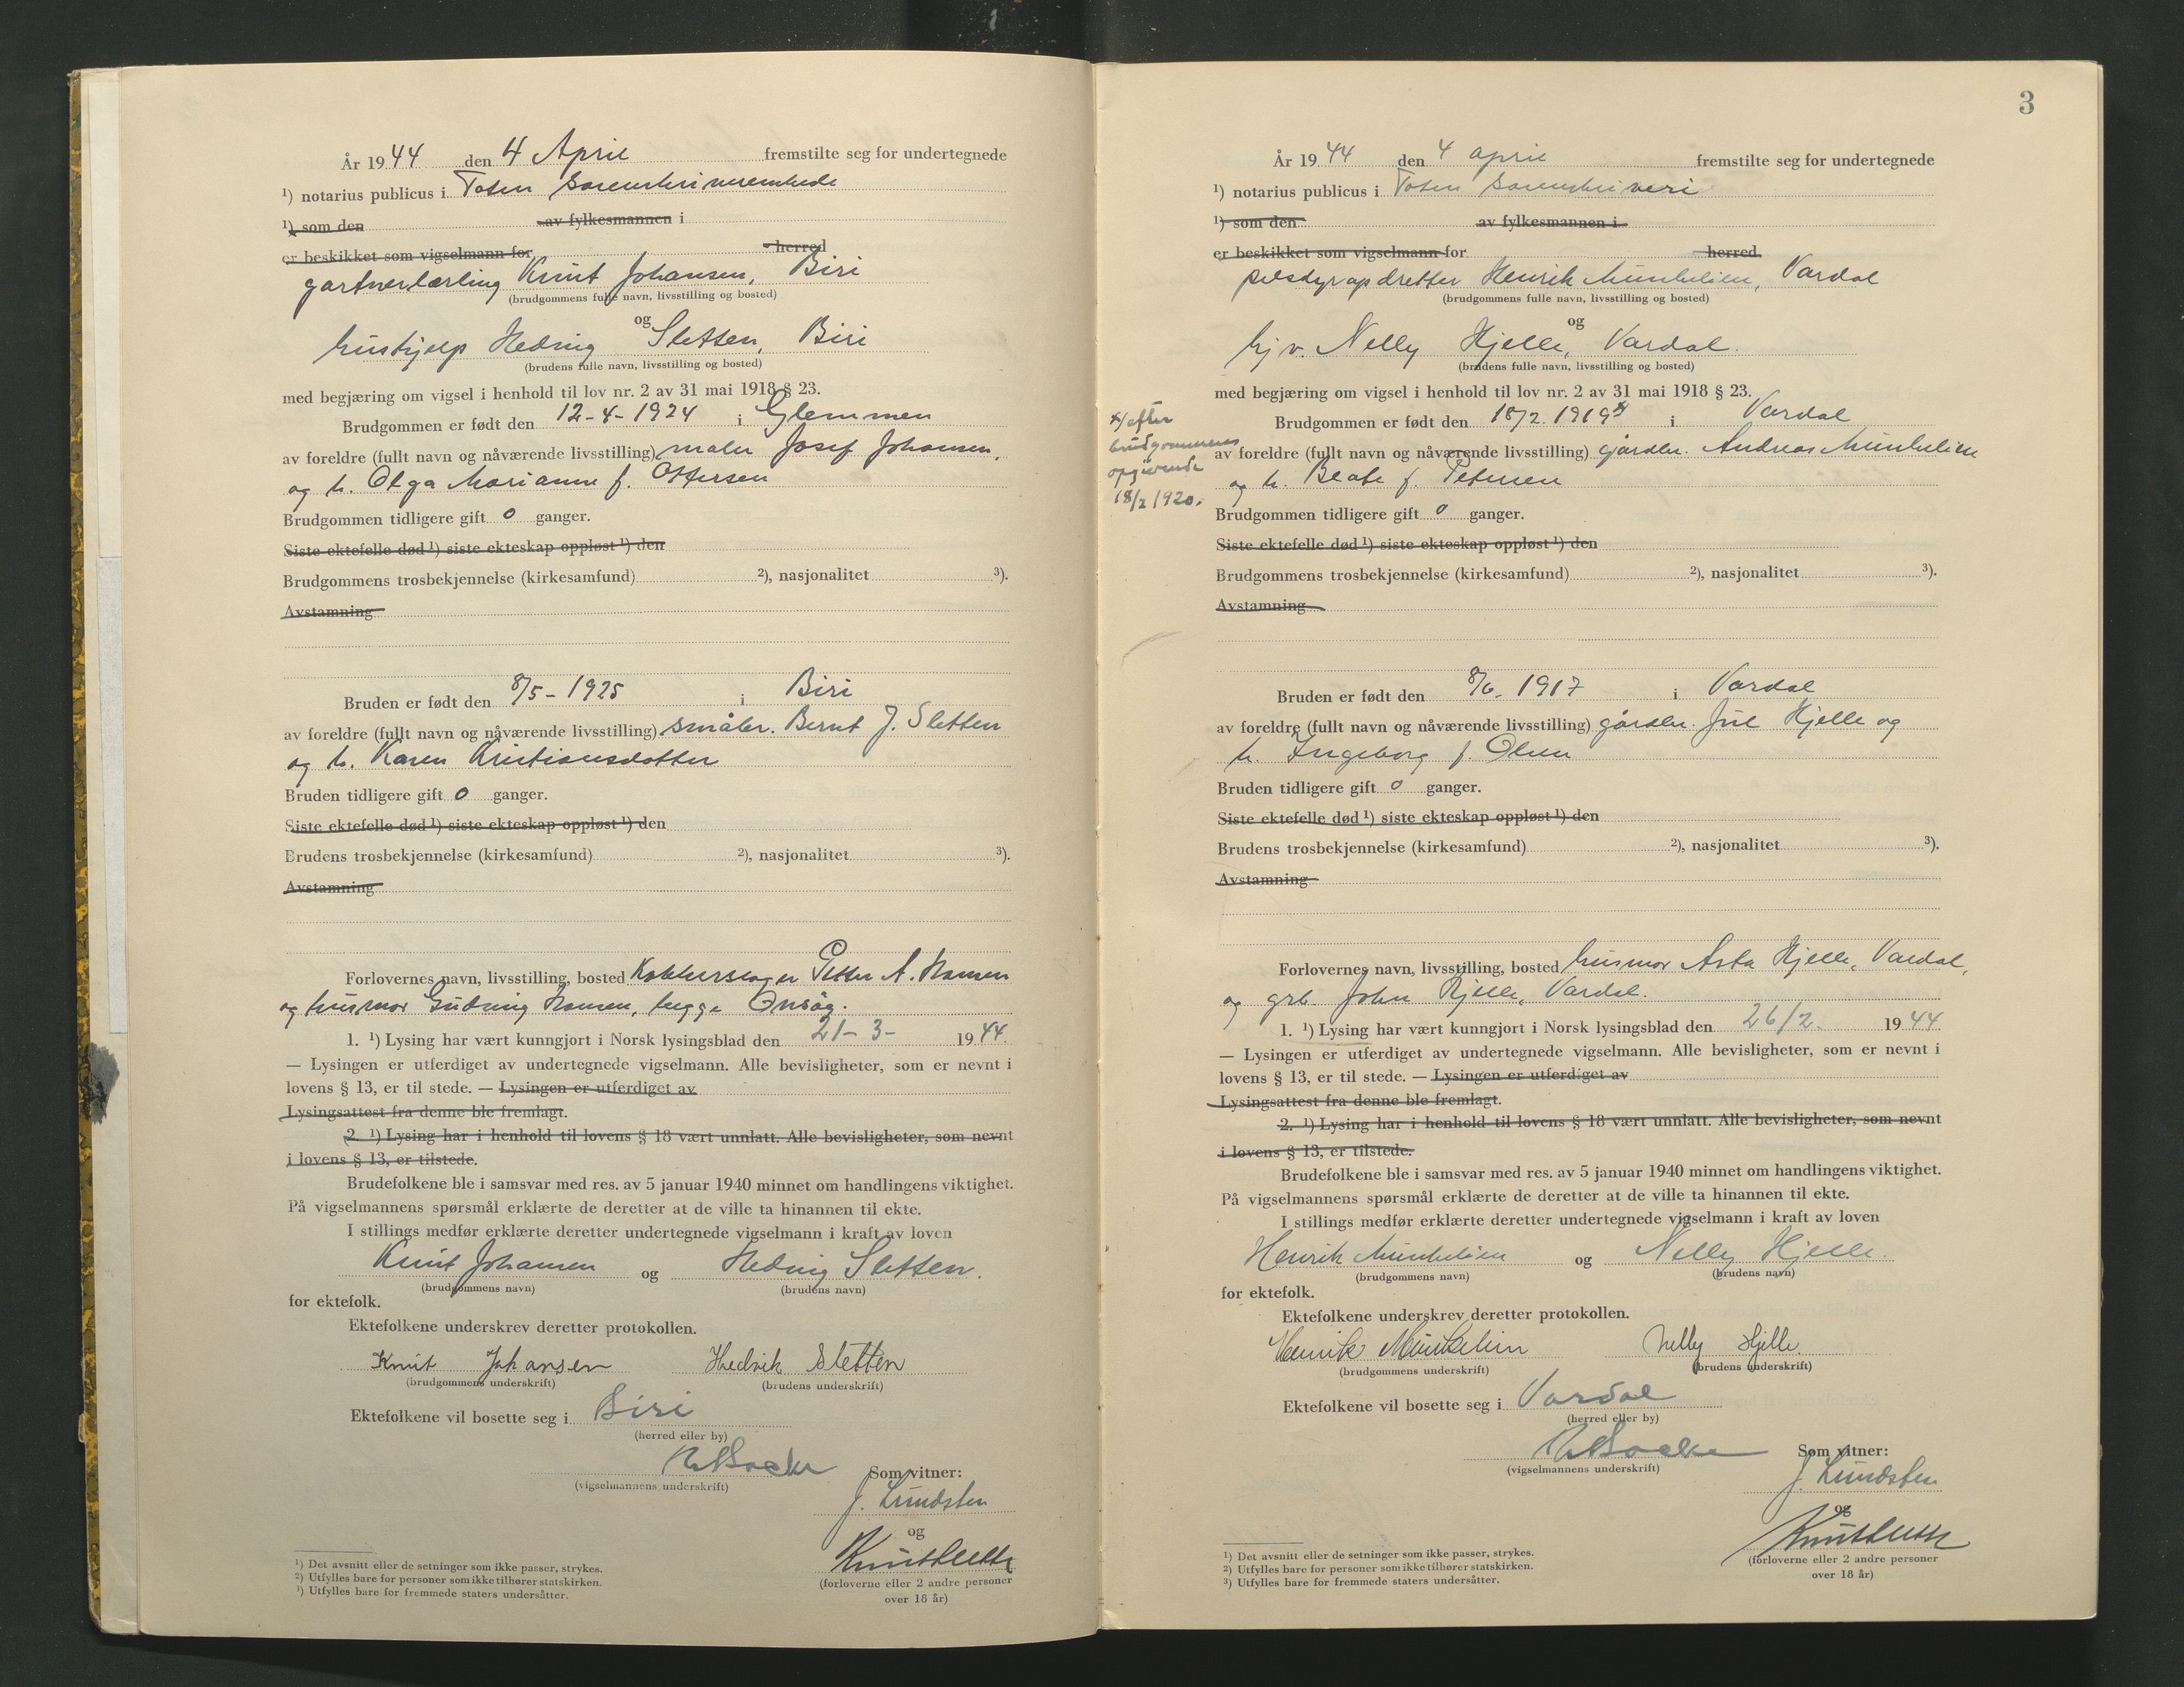 År 1944 den 4 April fremstilte seg for undertegnede
¹) notarius publicus i Toten sorenskriverembede
¹) som den av fylkesmannen i
er beskikket som vigselmann for herred
gartnerlærling Knut Johansen, Biri
(brudgommens fulle navn, livsstilling og bosted)
og
hushjelp Hedvig Sletten, Biri
(brudens fulle navn, livsstilling og bosted)
med begjæring om vigsel i henhold til lov nr. 2 av 31 mai 1918 § 23.
Brudgommen er født den 12-4-1924 i Glemmen
av foreldre (fullt navn og nåværende livsstilling) maler Josef Johansen,
og h. Olga Marianne f. Ottersen
Brudgommen tidligere gift 0 ganger.
Siste ektefelle død ¹) siste ekteskap oppløst ¹) den
Brudgommens trosbekjennelse (kirkesamfund) ²), nasjonalitet ³).
Avstamning
Bruden er født den 8/5-1925 i Biri
av foreldre (fullt navn og nåværende livsstilling) småbr. Bernt J. Sletten
og h. Karen Kristiansdotter
Bruden tidligere gift 0 ganger.
Siste ektefelle død ¹) siste ekteskap oppløst ¹) den
Brudens trosbekjennelse (kirkesamfund) ²), nasjonalitet ³).
Avstamning
Forlovernes navn, livsstilling, bosted Kobberslager Petter A. Hansen
og husmor Gudving Hansen, begge Onsøy.
1. ¹) Lysing har vært kunngjort i Norsk lysingsblad den 21-3- 1944.
— Lysingen er utferdiget av undertegnede vigselmann. Alle bevisligheter, som er nevnt i
lovens § 13, er til stede. — Lysingen er utferdiget av
Lysingsattest fra denne ble fremlagt.
2. ¹) Lysing har i henhold til lovens § 18 vært unnlatt. Alle bevisligheter, som nevnt
i lovens § 13, er tilstede.
Brudefolkene ble i samsvar med res. av 5 januar 1940 minnet om handlingens viktighet.
På vigselmannens spørsmål erklærte de deretter at de ville ta hinannen til ekte.
I stillings medfør erklærte deretter undertegnede vigselmann i kraft av loven
Knut Johansen og Hedvig Sletten.
(brudgommens navn) (brudens navn)
for ektefolk.
Ektefolkene underskrev deretter protokollen.
Knut Johansen Hedvik Sletten
(brudgommens underskrift) (brudens underskrift)
Ektefolkene vil bosette seg i Biri
(herred eller by)
(vigselmannens underskrift)
Som vitner:
J. Lundsten
og
(forloverne eller 2 andre personer
over 18 år)
¹) Det avsnitt eller de setninger som ikke passer, strykes.
²) Utfylles bare for personer som ikke tilhører statskirken.
³) Utfylles bare for fremmede staters undersåtter.
3
År 1944 den 4 april fremstilte seg for undertegnede
¹) notarius publicus i Toten sorenskriveri
¹) som den av fylkesmannen i
er beskikket som vigselmann for herred
pelsdyropdretter Henrik Munkelien, Vardal
(brudgommens fulle navn, livsstilling og bosted)
og
hj v. Nelly Hjelle, Vardal.
(brudens fulle navn, livsstilling og bosted)
med begjæring om vigsel i henhold til lov nr. 2 av 31 mai 1918 § 23.
Brudgommen er født den 18/2. 1919 x) i Vardal
x) efter
brudgommens
opgivende
18/2 1920.
av foreldre (fullt navn og nåværende livsstilling) gårdbr. Andreas Munkelien
og h. Beate f. Petersen
Brudgommen tidligere gift 0 ganger.
Siste ektefelle død ¹) siste ekteskap oppløst ¹) den
Brudgommens trosbekjennelse (kirkesamfund) ²), nasjonalitet ³).
Avstamning
Bruden er født den 8/6. 1917 i Vardal
av foreldre (fullt navn og nåværende livsstilling) gårdbr. Jul Hjelle og
h. Ingeborg f. Olsen
Bruden tidligere gift 0 ganger.
Siste ektefelle død ¹) siste ekteskap oppløst ¹) den
Brudens trosbekjennelse (kirkesamfund) ²), nasjonalitet ³).
Avstamning
Forlovernes navn, livsstilling, bosted husmor Asta Hjelle, Vardal,
og grb John Hjelle, Vardal.
1. ¹) Lysing har vært kunngjort i Norsk lysingsblad den 26/2. 1944
— Lysingen er utferdiget av undertegnede vigselmann. Alle bevisligheter, som er nevnt i
lovens § 13, er til stede. — Lysingen er utferdiget av
Lysingsattest fra denne ble fremlagt.
2. ¹) Lysing har i henhold til lovens § 18 vært unnlatt. Alle bevisligheter, som nevnt
i lovens § 13, er tilstede.
Brudefolkene ble i samsvar med res. av 5 januar 1940 minnet om handlingens viktighet.
På vigselmannens spørsmål erklærte de deretter at de ville ta hinannen til ekte.
I stillings medfør erklærte deretter undertegnede vigselmann i kraft av loven
Henrik Munkelien og Nelly Hjelle.
(brudgommens navn) (brudens navn)
for ektefolk.
Ektefolkene underskrev deretter protokollen.
Henrik Munkelien Nelly Hjelle
(brudgommens underskrift) (brudens underskrift)
Ektefolkene vil bosette seg i Vardal
(herred eller by)
(vigselmannens underskrift)
Som vitner:
J. Lundsten
og
(forloverne eller 2 andre personer
over 18 år)
¹) Det avsnitt eller de setninger som ikke passer, strykes.
²) Utfylles bare for personer som ikke tilhører statskirken.
³) Utfylles bare for fremmede staters undersåtter.